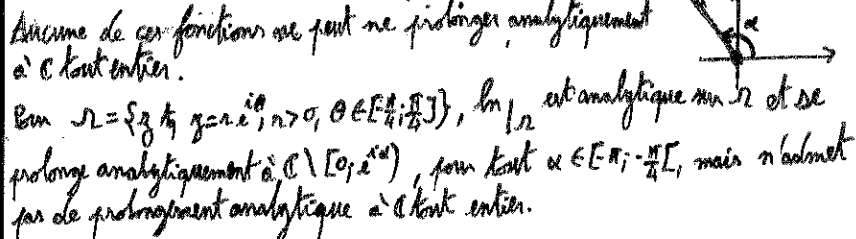 Aucune de ces fonctions ne peut se prolonger analytiquement
à ℂ tout entier.
α
Ω = {z tq z = r.e^{iθ}, r>0, θ ∈ [-π/4; π/4]}, ln|_Ω est analytique sur Ω et se
prolonge analytiquement à ℂ \ [0; e^{iα}), pour tout α ∈ [-π; -π/4[, mais n'admet
pas de prolongement analytique à ℂ tout entier.